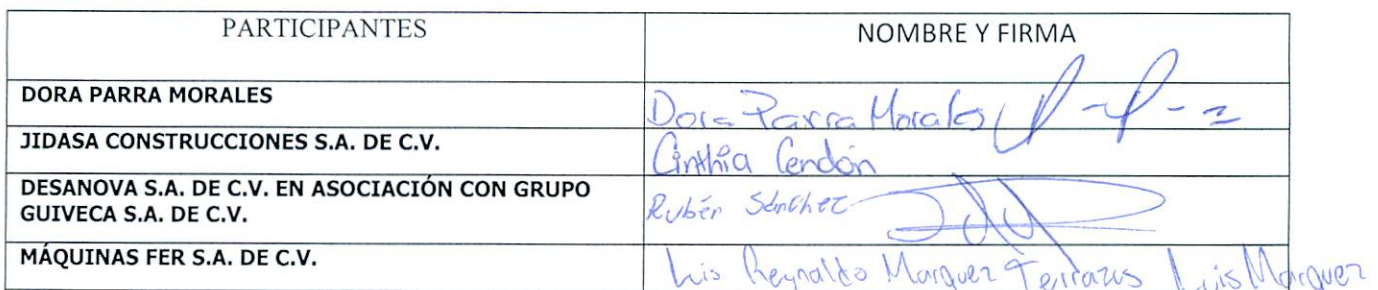 PARTICIPANTES
NOMBRE Y FIRMA
DORA PARRA MORALES
Dora Parra Morales
JIDASA CONSTRUCCIONES S.A. DE C.V.
Cinthia Cendón
DESANOVA S.A. DE C.V. EN ASOCIACIÓN CON GRUPO
GUIVECA S.A. DE C.V.
Rubén Sánchez
MÁQUINAS FER S.A. DE C.V.
Luis Reynaldo Marquez Terrazas Luis Marquez